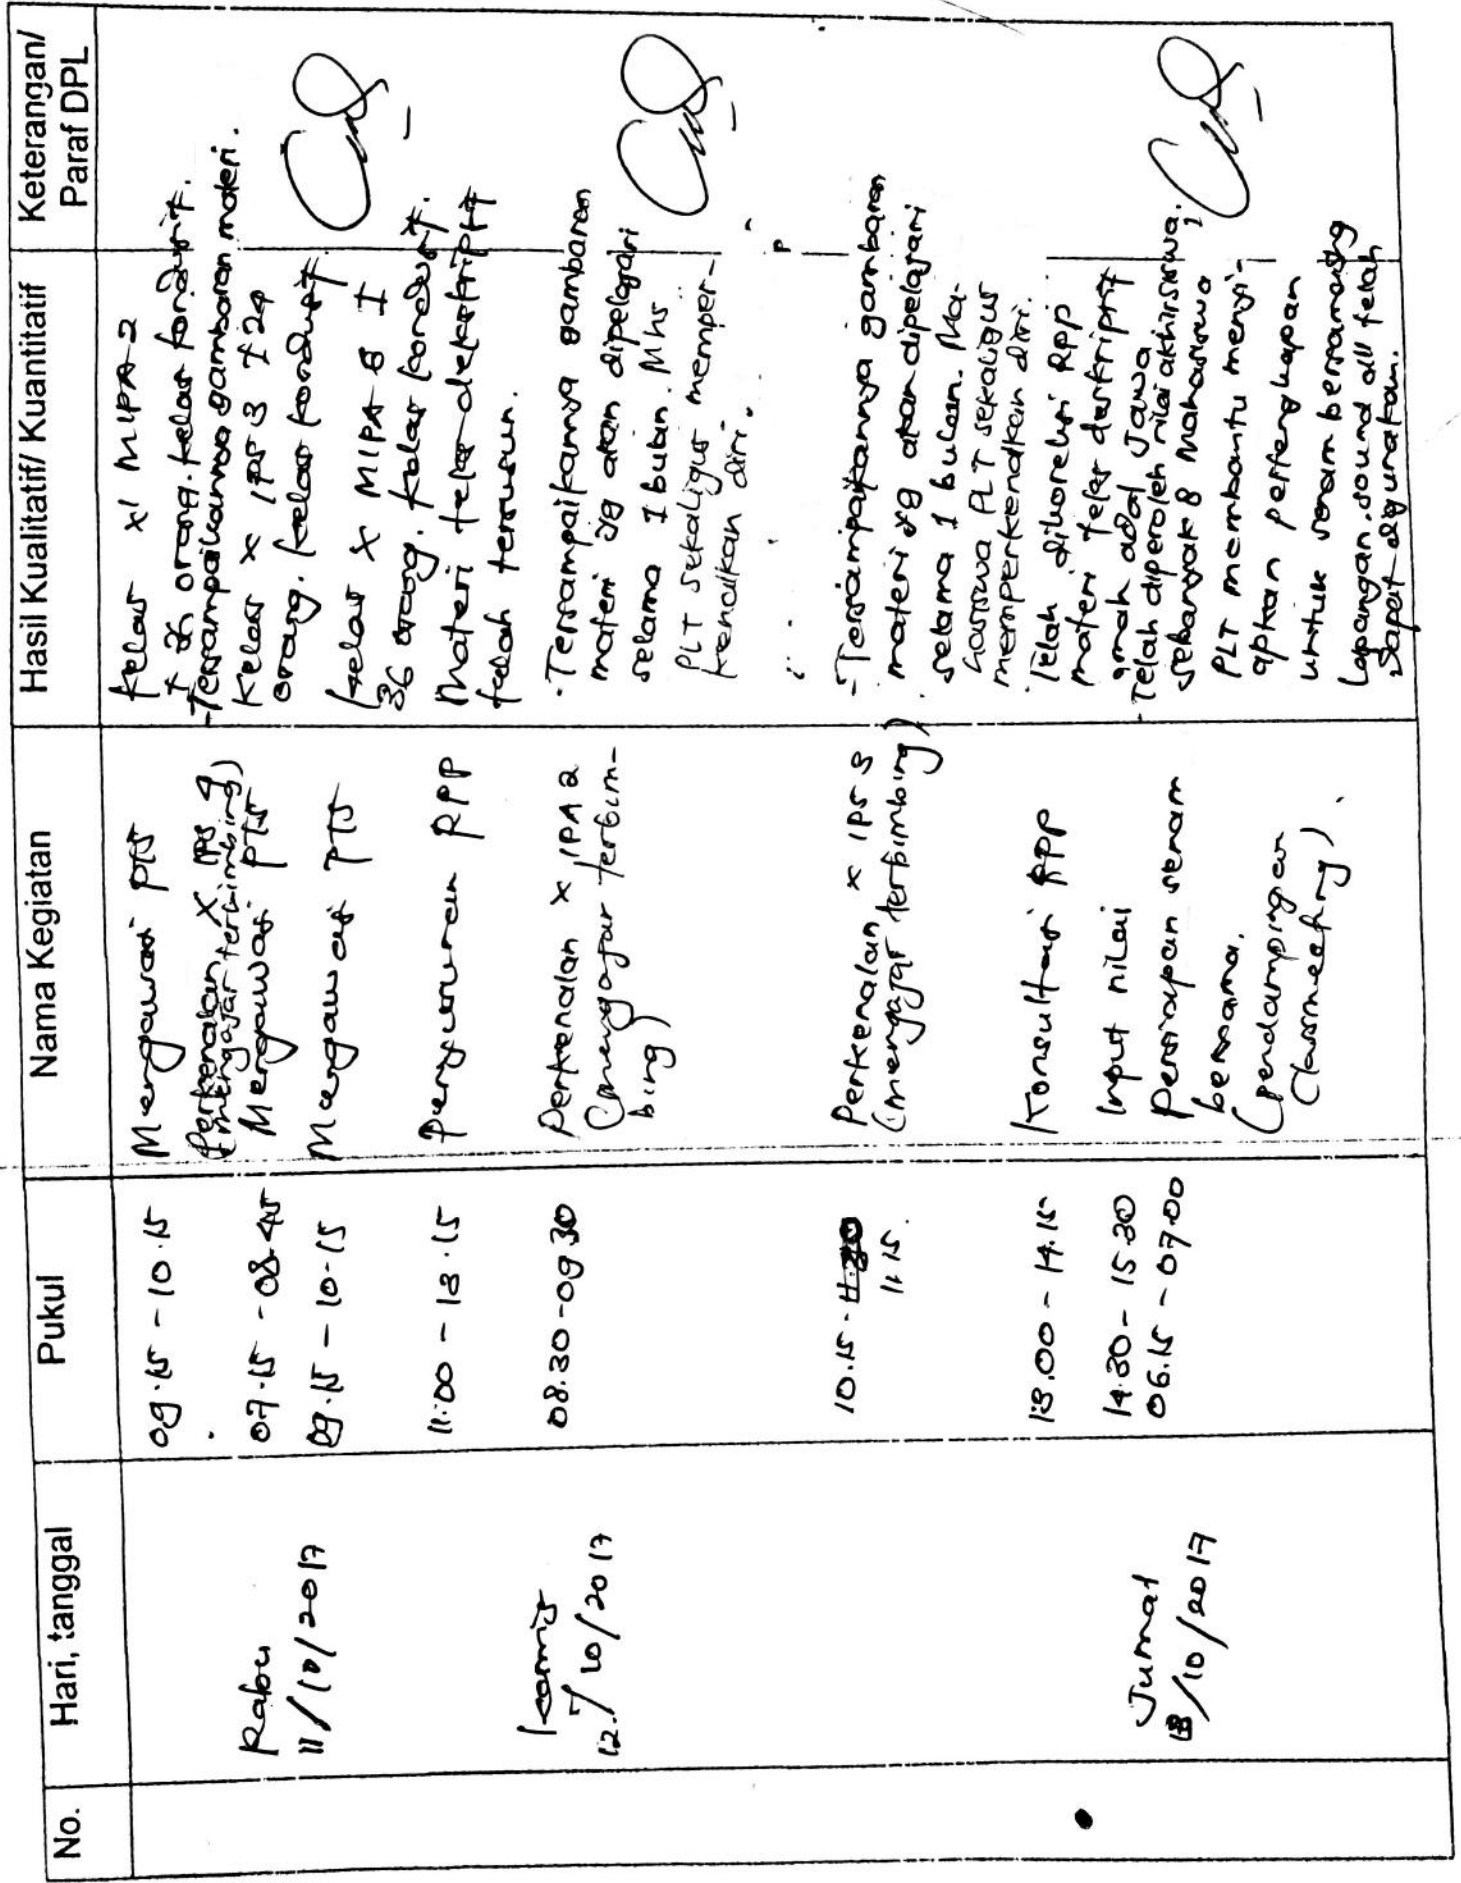 No.
Hari, tanggal
Pukul
Nama Kegiatan
Hasil Kualitatif/ Kuantitatif
Keterangan/
Paraf DPL
09.15 - 10.15
Mengawasi PTS
Kelas XI MIPA 2
orang. kelas kondusif.
Perkenalan X IPS
(mengajar terbimbing)
- Tersampaikannya gambaran materi.
Rabu
11/10/2017
07.15 - 08.45
Mengawasi PTS
Kelas X IPS 3 ± 24
orang. kelas kondusif.
09.15 - 10.15
Mengawasi PTS
Kelas X MIPA
36 orang. Kelas kondusif.
11.00 - 13.15
Penyusunan RPP
Materi teks deskriptif
telah tersusun.
Kamis
12/10/2017
08.30 - 09.30
Perkenalan X IPA 2
(mengajar terbim-
bing)
- Tersampaikannya gambaran
materi yg akan dipelajari
selama 1 bulan. Mhs
PLT sekaligus memper-
kenalkan diri.
10.15 -
11.15.
Perkenalan X IPS 3
(mengajar terbimbing)
- Tersampaikannya gambaran
materi yg akan dipelajari
selama 1 bulan. Ma-
hasiswa PLT sekaligus
memperkenalkan diri.
13.00 - 14.15
Konsultasi RPP
Telah dikoreksi RPP
materi teks deskriptif
omah adat Jawa
14.30 - 15.30
Input nilai
- Telah diperoleh nilai akhir siswa.
Jumat
13/10/2017
06.15 - 07.00
Persiapan senam
bersama.
(pendampingan
Classmeeting)
sebanyak 8 Mahasiswa
PLT membantu menyi-
apkan perlengkapan
untuk senam bersama
lapangan, sound dll telah
dapat digunakan.